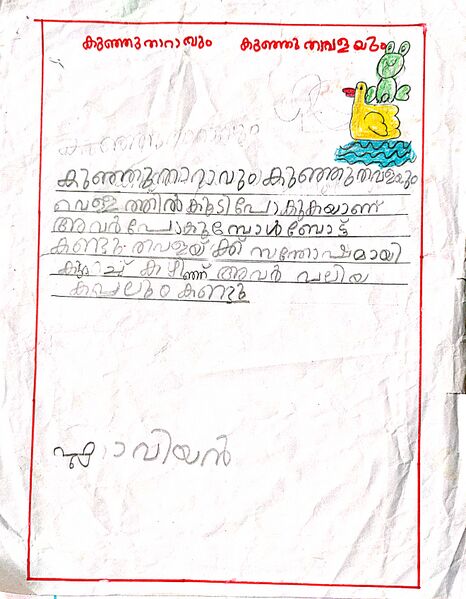 കുഞ്ഞുതാറാവും കുഞ്ഞുതവളയും
കുഞ്ഞുതാറാവും കുഞ്ഞുതവളയും
വെള്ളത്തിൽ കൂടി പോകുകയാണ്
അവർ പോകുമ്പോൾ ബോട്ട്
കണ്ടു. തവളയ്ക്ക് സന്തോഷമായി
കുറച്ച് കഴിഞ്ഞ് അവർ വലിയ
കപ്പലും കണ്ടു
ഫ്ലാവിയൻ